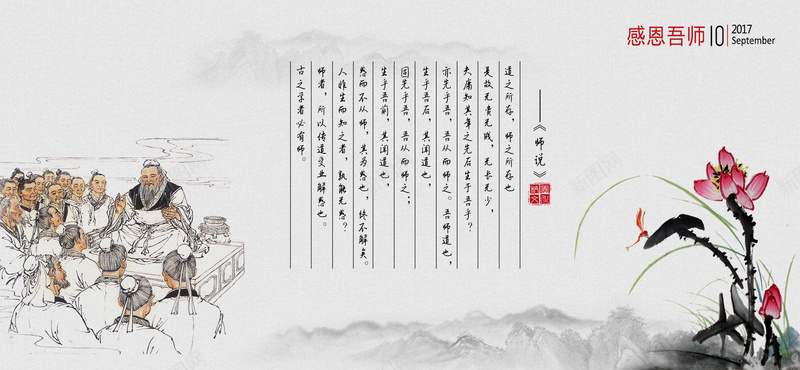 感恩吾师10
2017
September
——《师说》
古之学者必有师。
师者，所以传道受业解惑也。
人非生而知之者，孰能无惑？
惑而不从师，其为惑也，终不解矣。
生乎吾前，其闻道也，
固先乎吾，吾从而师之；
生乎吾后，其闻道也，
亦先乎吾，吾从而师之。吾师道也，
夫庸知其年之先后生于吾乎？
是故无贵无贱，无长无少，
道之所存，师之所存也